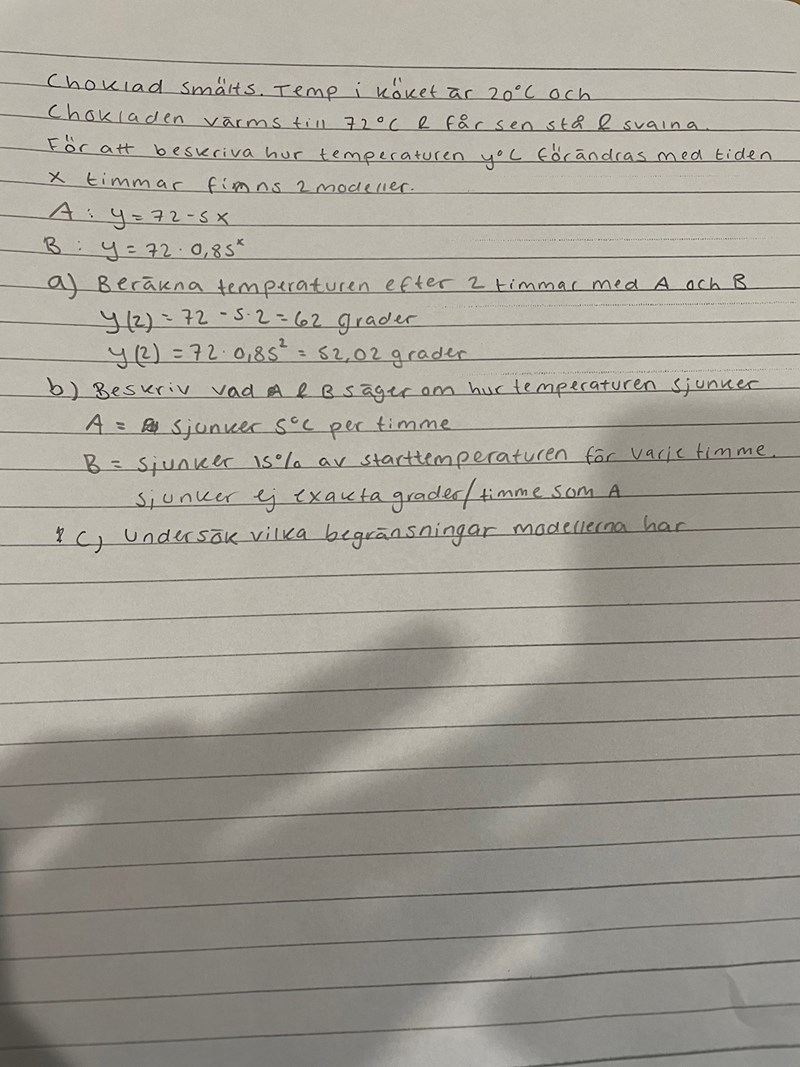 Choklad smälts. Temp i köket är 20°C och
Chokladen värms till 72°C & får sen stå & svalna.
För att beskriva hur temperaturen y°C förändras med tiden
x timmar finns 2 modeller.
A: y = 72 - 5x
B: y = 72 · 0,85ˣ
a) Beräkna temperaturen efter 2 timmar med A och B
y(2) = 72 - 5·2 = 62 grader
y(2) = 72 · 0,85² = 52,02 grader
b) Beskriv vad A & B säger om hur temperaturen sjunker
A = sjunker 5°C per timme
B = sjunker 15% av starttemperaturen för varje timme.
sjunker ej exakta grader/timme som A
c) Undersök vilka begränsningar modellerna har